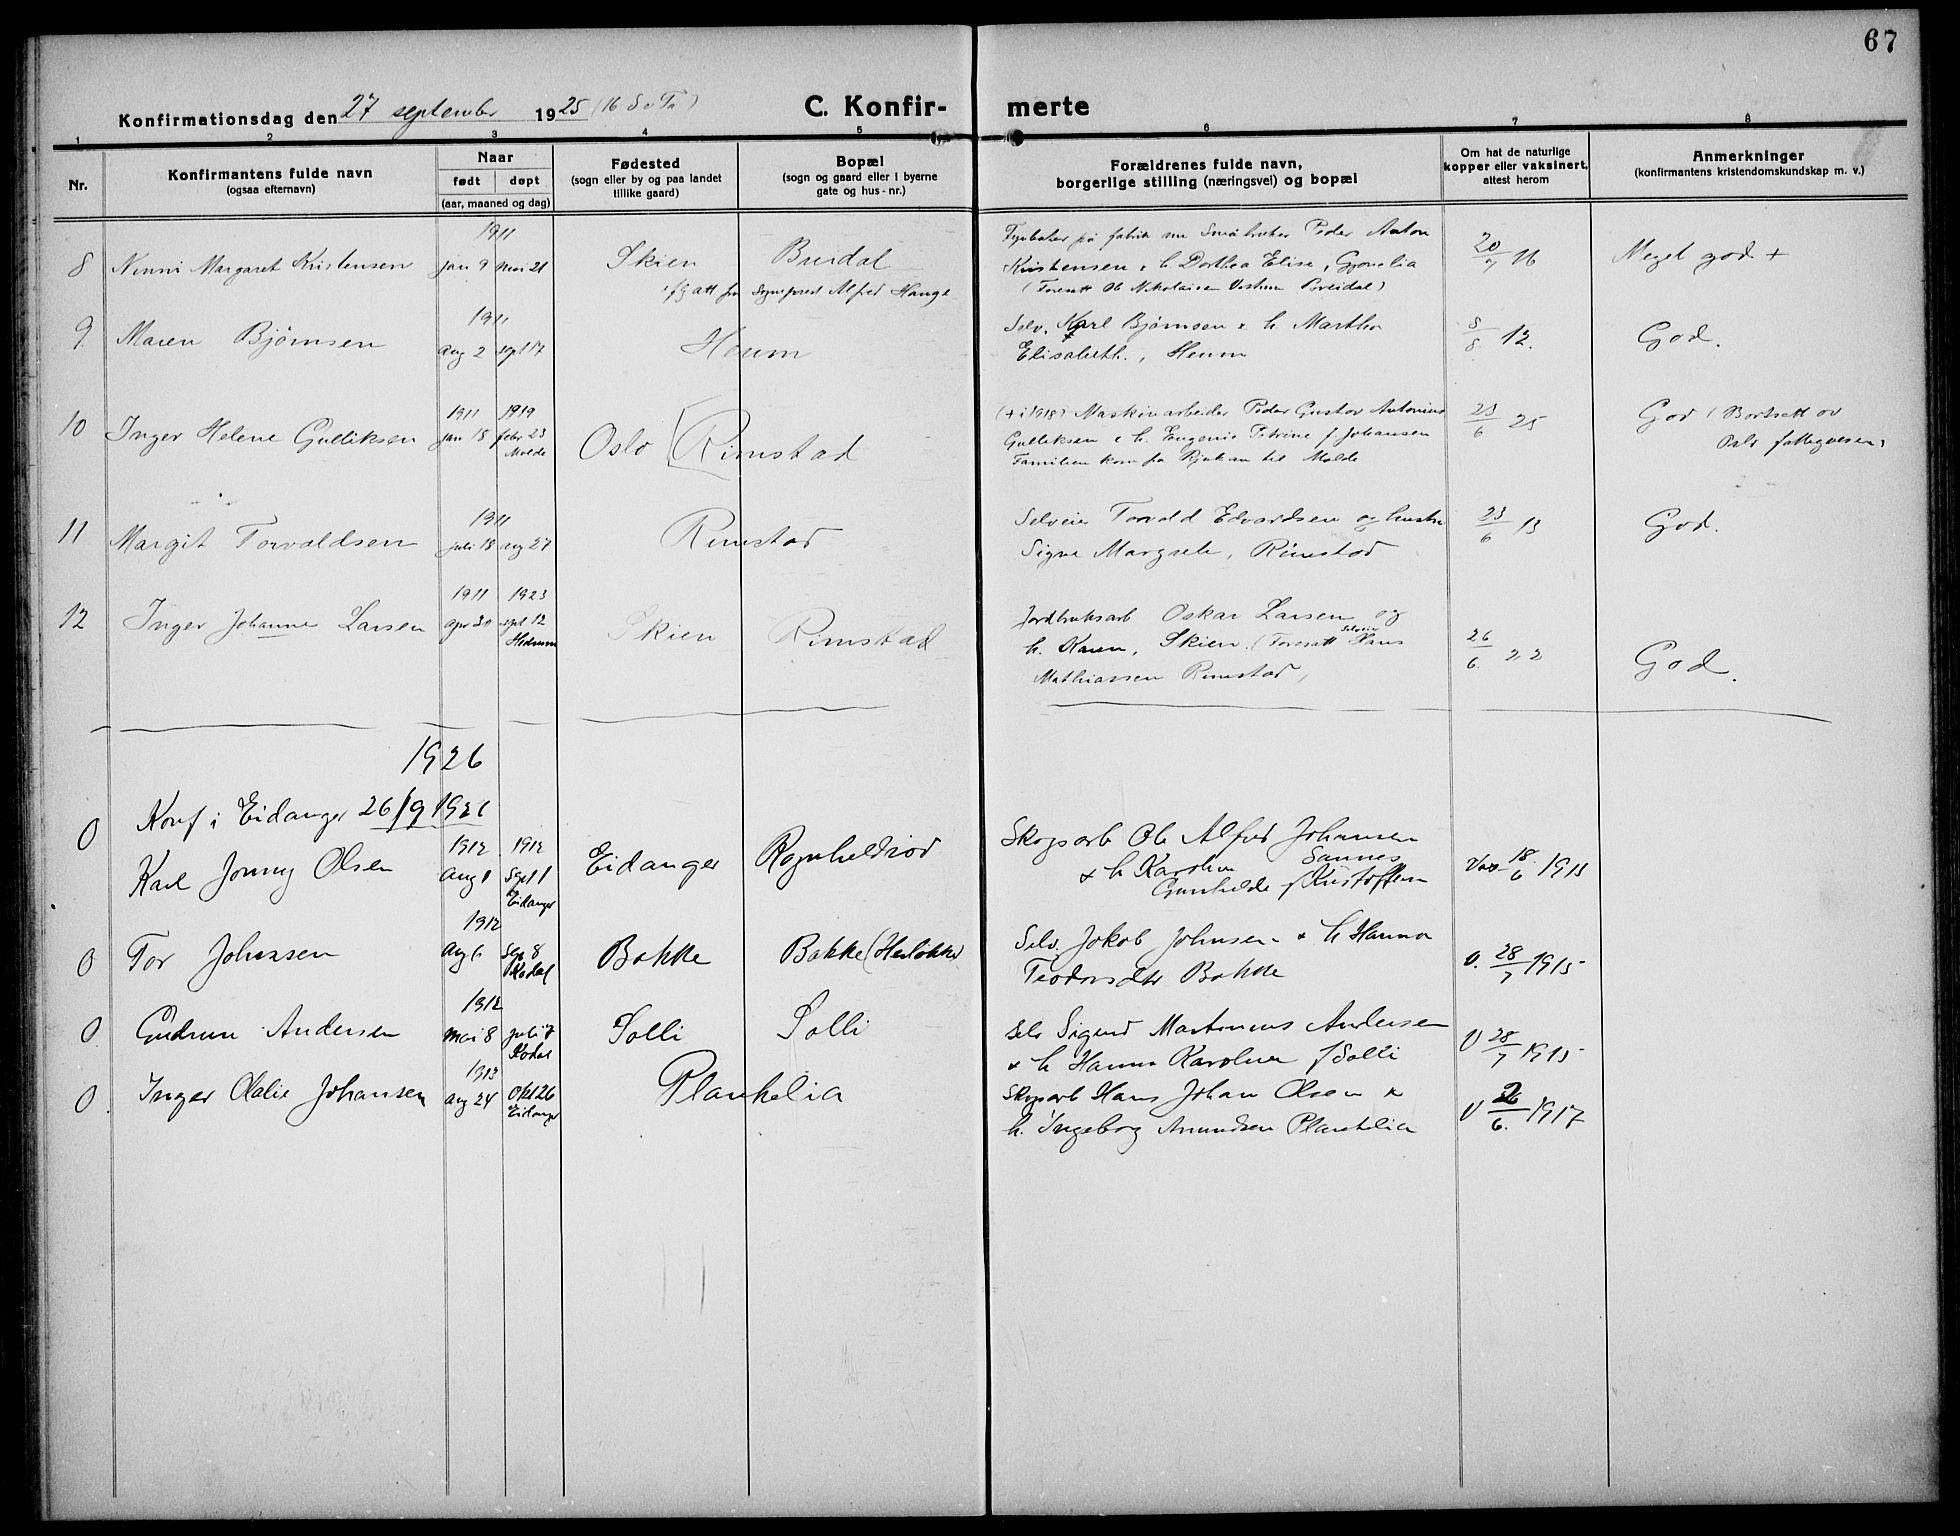 67
Konfirmationsdag den 27 september 1925 (16 S e Tr)
C. Konfir- merte
1 2 3 4 5 6 7 8
Nr.
Konfirmantens fulde navn
(ogsaa efternavn)
Naar
født døpt
(aar, maaned og dag)
Fødested
(sogn eller by og paa landet
tillike gaard)
Bopæl
(sogn og gaard eller i byerne
gate og hus-nr.)
Forældrenes fulde navn,
borgerlige stilling (næringsvei) og bopæl
Om hat de naturlige
kopper eller vaksinert,
attest herom
Anmerkninger
(konfirmantens kristendomskundskap m. v.)
1911
8 Nenni Margaret Kristensen jan 9 mai 21 Skien
att fra Sogneprest Alfred Hauge
på fabrik Småbruker Peder Anton
Kristensen & h. Dorthea Elise,
(Foresatt Ole Nikolaisen Breidal)
20/7 16 Meget god +
1911
9. Maren Bjørnsen aug 2 sept 17 Houm
Selv. Karl Bjørnsen & h. Martha
Elisabeth., Houm
8/8 12. God.
1911 1919
10 Inger Helene Gulliksen jan 18 febr 23 Molde Oslo Rimstad
(+ i 1918) Maskinarbeider Peder Gustav Antonius
Gulliksen & h. Eugenie Petrine f. Johansen
Familien kom fra Rjukan til Molde
23/6 25 God (Bortsatt av
Oslo fattigvesen)
1911
11 Margit Torvaldsen juli 18 aug 27 Rimstad
Selveier Torvald Edvardsen og hustru
Signe Margrete, Rimstad
23/6 13 God.
1911 1923
12 Inger Johanne Larsen apr 30 sept 12 Hedrum Skien Rimstad
Jordbruksarb Oskar Larsen og
h. Karen, Skien. (Foresatt Selveier Hans
Mathiassen Rimstad,
26/6. 22 God.
1926
0 Konf i Eidanger 26/9 1926
1912 1912
Karl Jonny Olsen aug 1 Sept 1 Eidanger Eidanger Rognheldrød
Skogsarb Ole Alfred Johansen
Sannes
& h Karoline
Gunhilde f Kristoffersen
Vax 18/6 1915
1912
0 Tor Johnsen aug 6 Sep 8 Kodal Bakke Bakke (Herløkka)
Selv. Jokob Johnsen & h Hanna
Teodorsdtr Bakke
V. 28/7 1915
1912
0 Gudrun Andersen mai 8 juli 7 Kodal Solli Solli
Selv Sigurd Martinius Andersen
& h Hanna Karoline f Solli
V 28/7 1915
1913
0 Inger Olalie Johansen aug 24 Okt 26 Eidanger Plankelia
Skogsarb Hans Johan Olsen &
h. Ingeborg Amundsen Plankelia
V 26/6. 1917